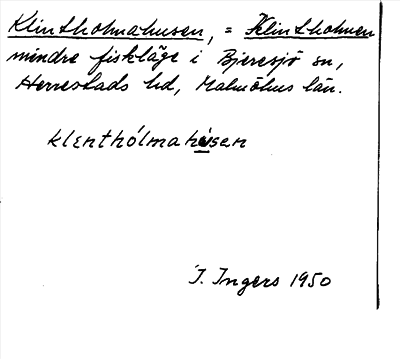 Klintholmahusen, = Klintholmen
mindre fiskläge i Bjeresjö sn,
Herrestads hd, Malmöhus län.
klɛnthólmahùsen
I. Ingers 1950